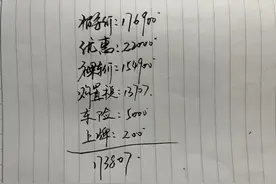 指导价:176900
优惠:22000
裸车价:154900
购置税:13707
车险:5000
上牌:200
173807